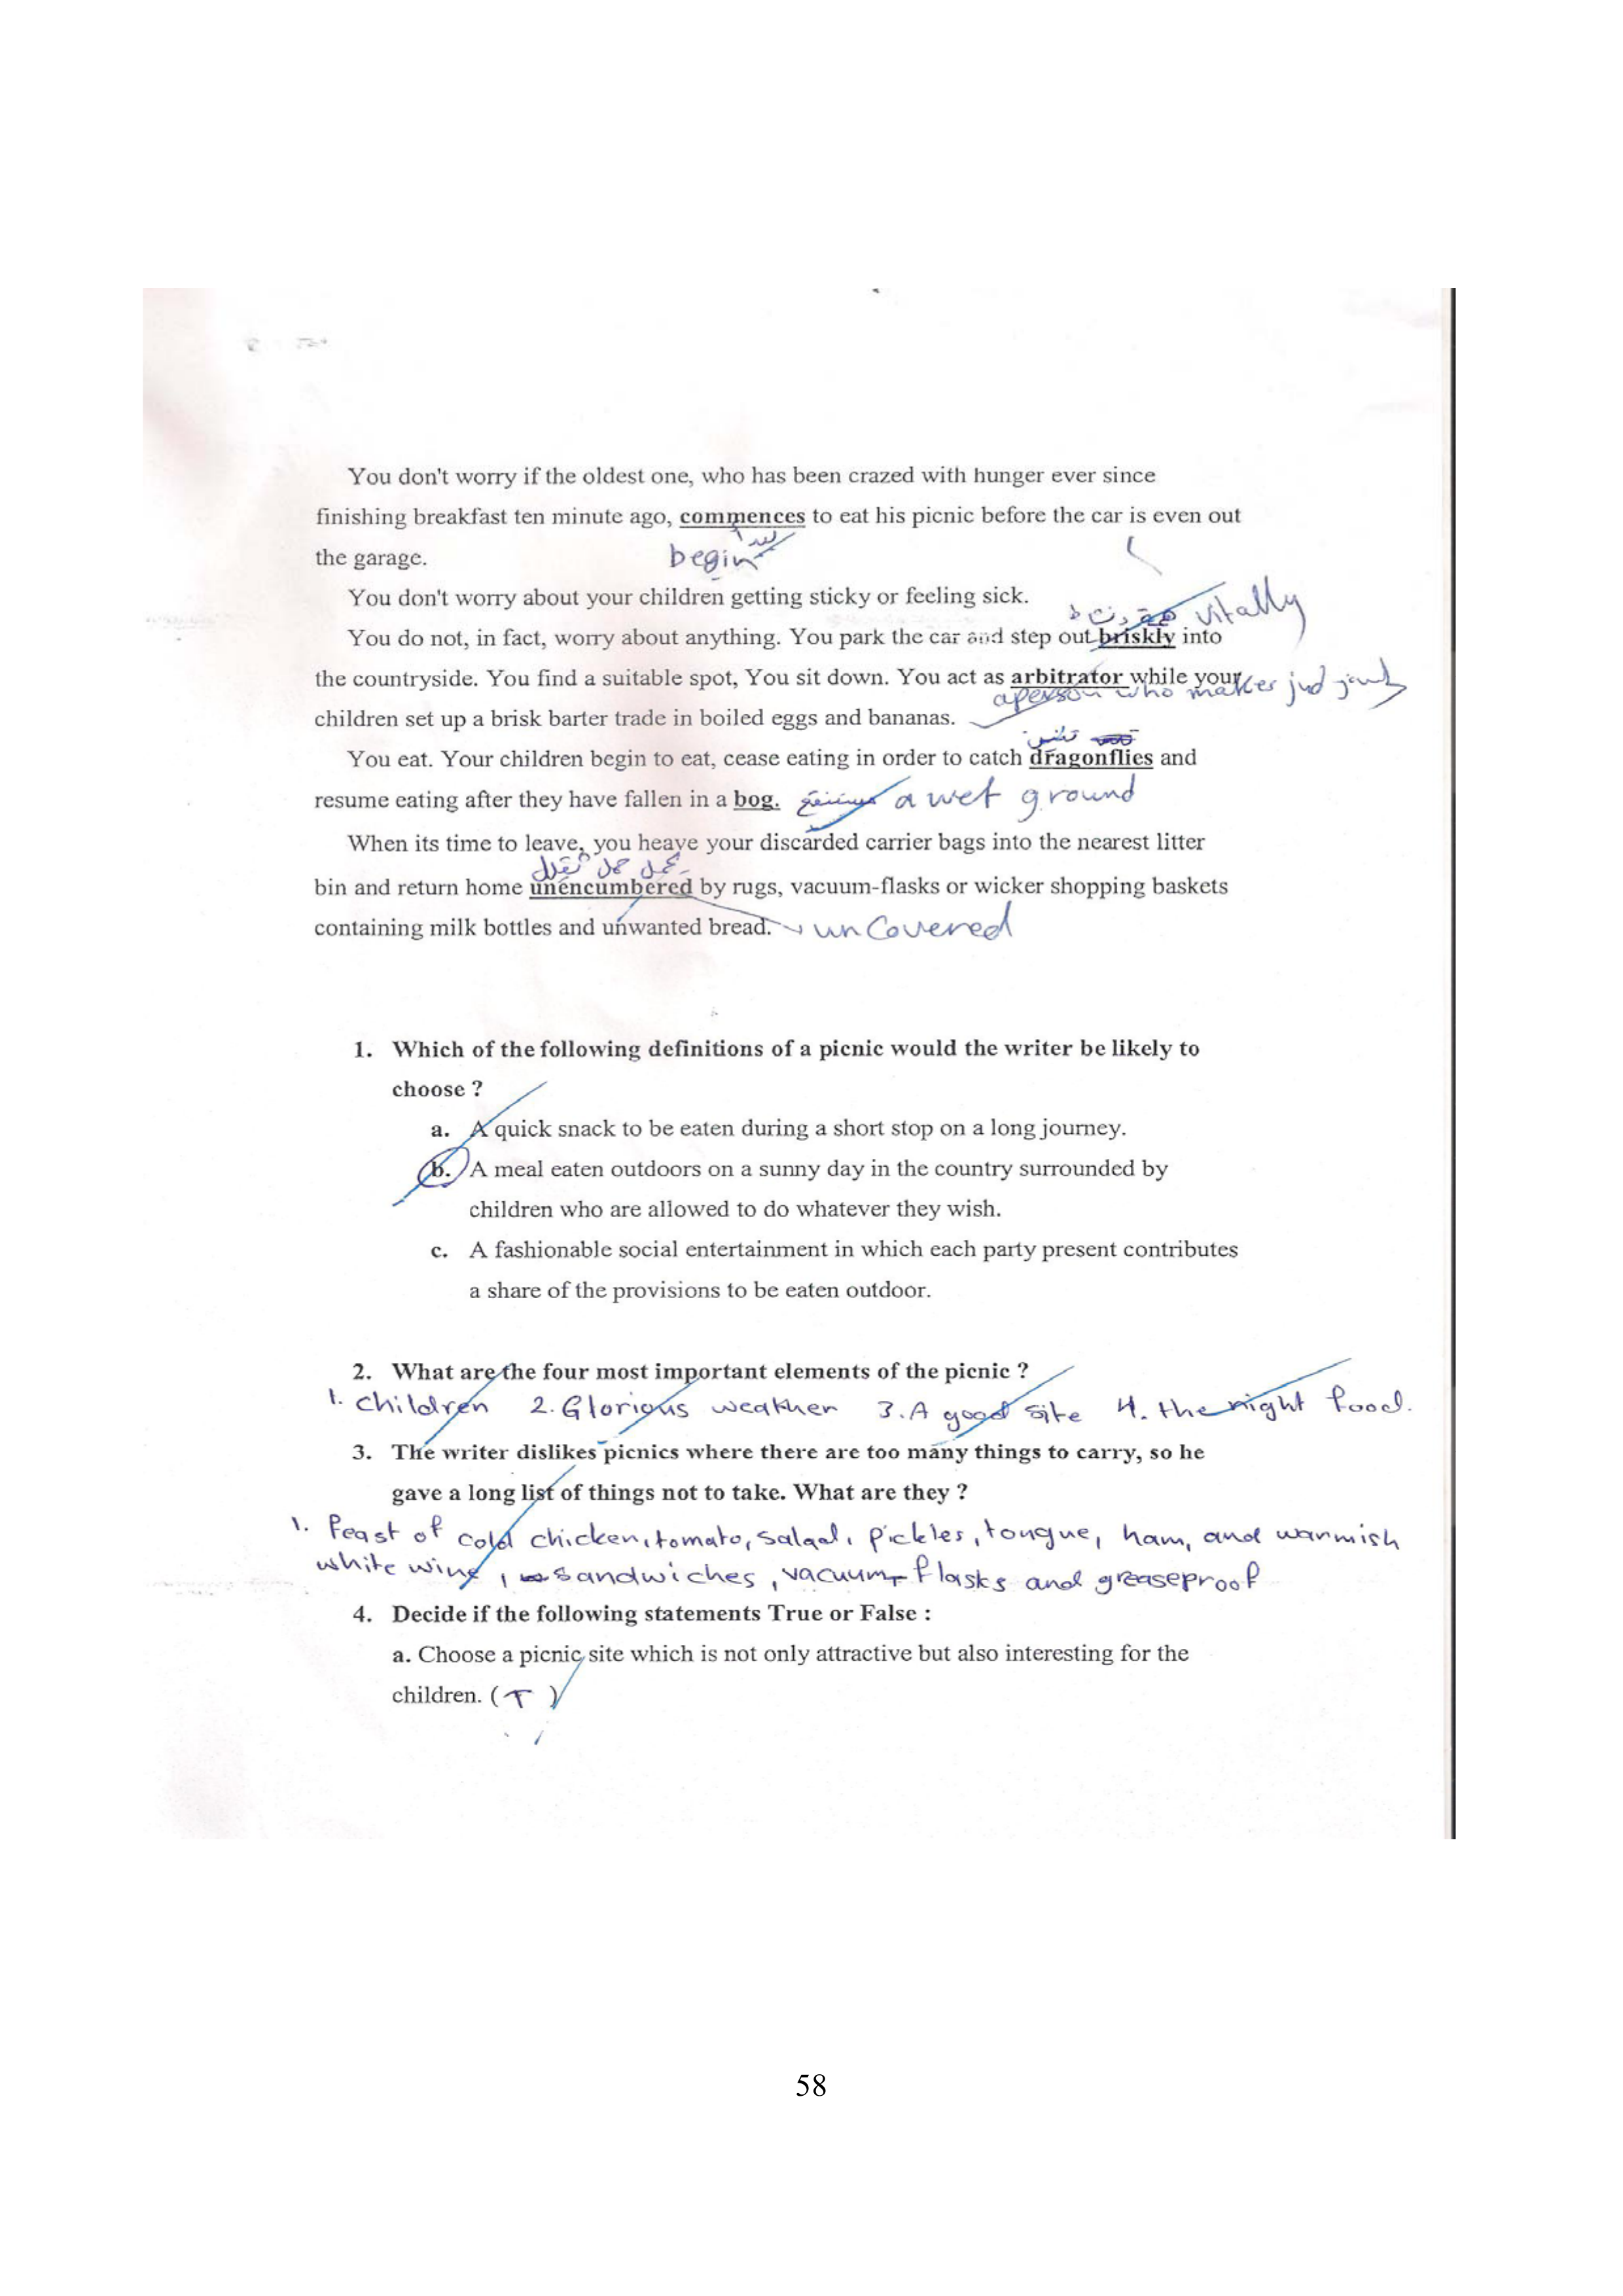 You don't worry if the oldest one, who has been crazed with hunger ever since
finishing breakfast ten minute ago, commences to eat his picnic before the car is even out
the garage.
begin
You don't worry about your children getting sticky or feeling sick.
vitally
You do not, in fact, worry about anything. You park the car and step out briskly into
the countryside. You find a suitable spot, You sit down. You act as arbitrator while your
a person who makes
children set up a brisk barter trade in boiled eggs and bananas.
You eat. Your children begin to eat, cease eating in order to catch dragonflies and
resume eating after they have fallen in a bog. a wet ground
When its time to leave, you heave your discarded carrier bags into the nearest litter
bin and return home unencumbered by rugs, vacuum-flasks or wicker shopping baskets
containing milk bottles and unwanted bread. unCovered
1. Which of the following definitions of a picnic would the writer be likely to
choose ?
a. A quick snack to be eaten during a short stop on a long journey.
b. A meal eaten outdoors on a sunny day in the country surrounded by
children who are allowed to do whatever they wish.
c. A fashionable social entertainment in which each party present contributes
a share of the provisions to be eaten outdoor.
2. What are the four most important elements of the picnic ?
1. children 2. Glorious weather 3. A good site 4. the right food.
3. The writer dislikes picnics where there are too many things to carry, so he
gave a long list of things not to take. What are they ?
1. feast of cold chicken, tomato, salad, pickles, tongue, ham, and warmish
white wine, sandwiches, vacuum-flasks and greaseproof
4. Decide if the following statements True or False :
a. Choose a picnic site which is not only attractive but also interesting for the
children. ( T )
58